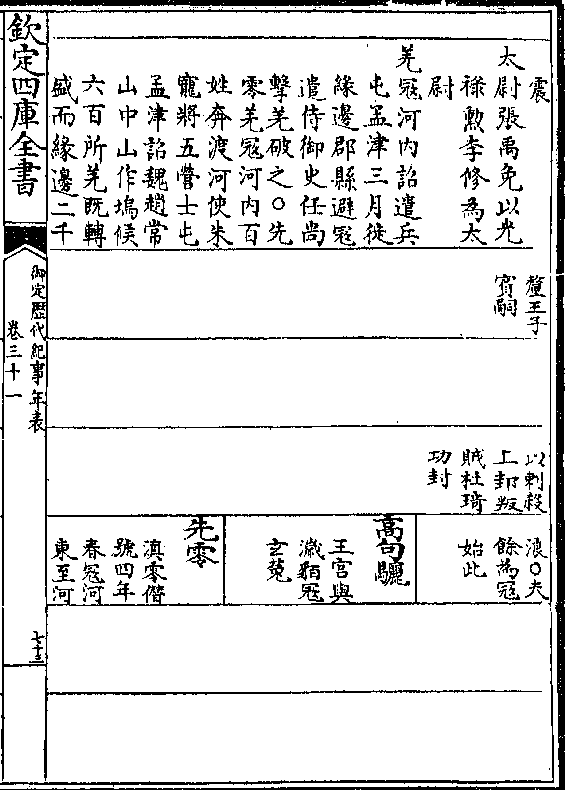 震
太尉張禹免以光
祿勲李修為太
尉
羌冦河内詔遣兵
屯孟津三月徙
緣邊郡縣避冦
遣侍御史任尚
擊羌破之○先
零羌冦河内百
姓奔渡河使朱
寵將五營士屯
孟津詔魏趙常
山中山作塢候
六百所羌既轉
盛而緣邊二千
釐王子
寳嗣
以刺殺
上邽叛
賊杜琦
功封
浪○夫
餘為冦
始此
高句驪
王宫與
濊貊冦
玄菟
先零
滇零僭
號四年
春冦河
東至河
欽定四庫全書
御定歴代紀事年表
卷三十一
七十三